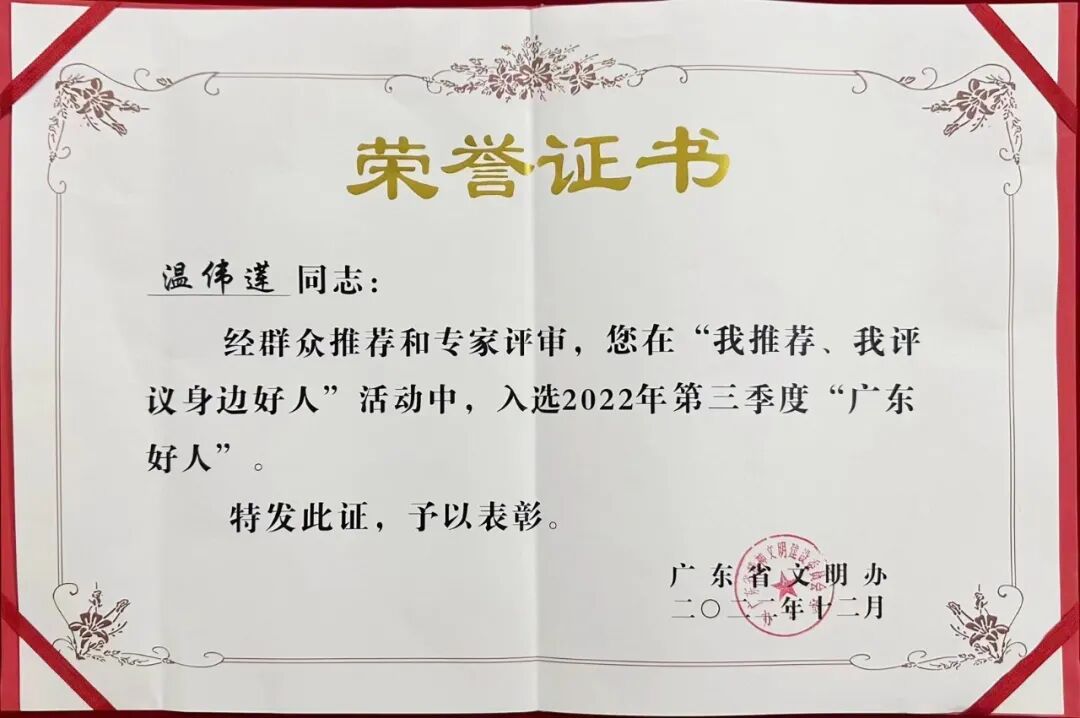 荣誉证书
温伟莲 同志：
经群众推荐和专家评审，您在“我推荐、我评
议身边好人”活动中，入选2022年第三季度“广东
好人”。
特发此证，予以表彰。
广东省文明办
二〇二二年十二月